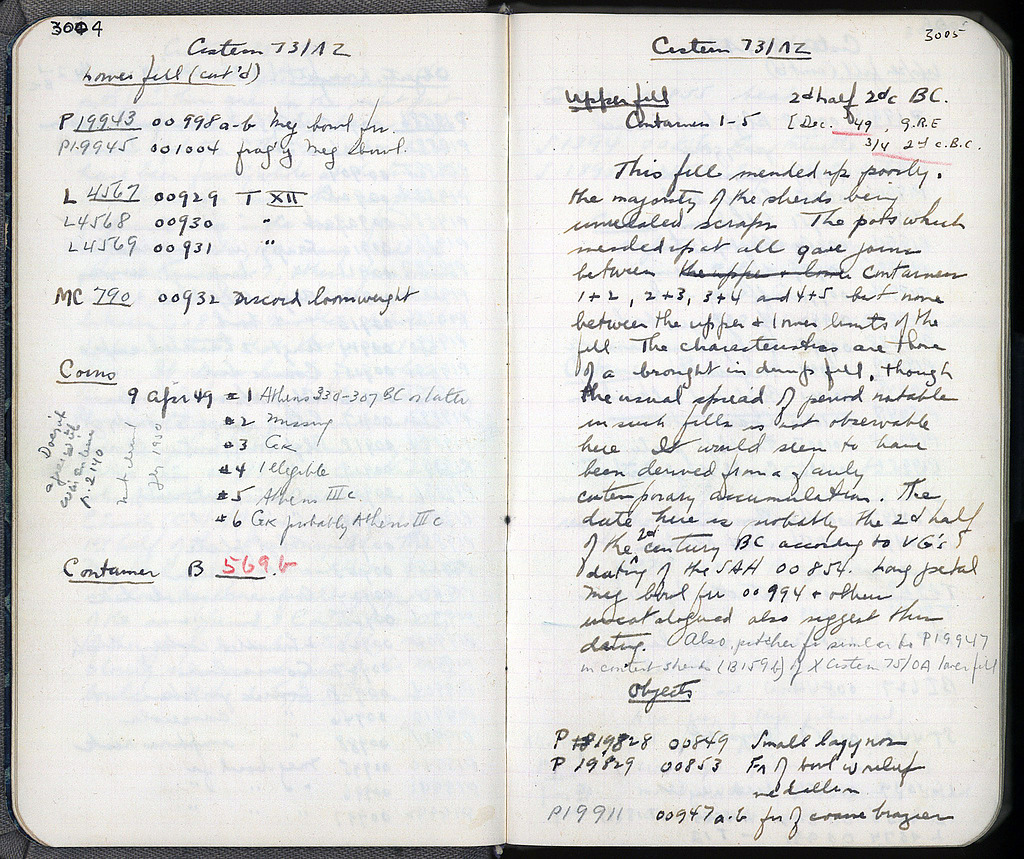 3004
Cistern 73/ΛZ
Lower fill (cont'd)
P 19943 00 998 a-b Meg bowl fr.
P19945 001004 frag'y Meg bowl.
L 4567 00929 T XII
L4568 00930 "
L4569 00931 "
MC 790 00932 Discoid loomweight
Coins
9 Apr 49 #1 Athens 330-307 BC or later
#2 missing
#3 Gk
#4 illegible
#5 Athens IIIc.
#6 Gk probably Athens III c
Doesn't
agree with
p. 2140
Container B 569b
3005
Cistern 73/ΛZ
Upper fill 2d half 2d c BC.
Container 1-5 [Dec. 49, G.R.E
3/4 2d c. B.C.
This fill mended up poorly,
the majority of the sherds being
unrelated scraps. The pots which
mended up at all gave joins
between the upper + lower containers
1+2, 2+3, 3+4 and 4+5 but none
between the upper + lower limits of the
fill. The characteristics are those
of a brought in dump fill, though
the usual spread of period notable
in such fills is not observable
here. It would seem to have
been derived from a fairly
contemporary accumulation. The
date here is probably the 2d half
of the 2nd century BC according to VG's
dating of the SAH 00 854. Long petal
Meg bowl fr 00 994 + others
uncatalogued also suggest this
dating. Also, pitcher fr similar to P19947
in context sherds (B159b) of X Cistern 75/ΟΛ lower fill
Objects
P 19828 00849 Small lagynos
P 19829 00853 Fr of bowl w relief
medallion
P19911 00947a-b frr of coarse brazier